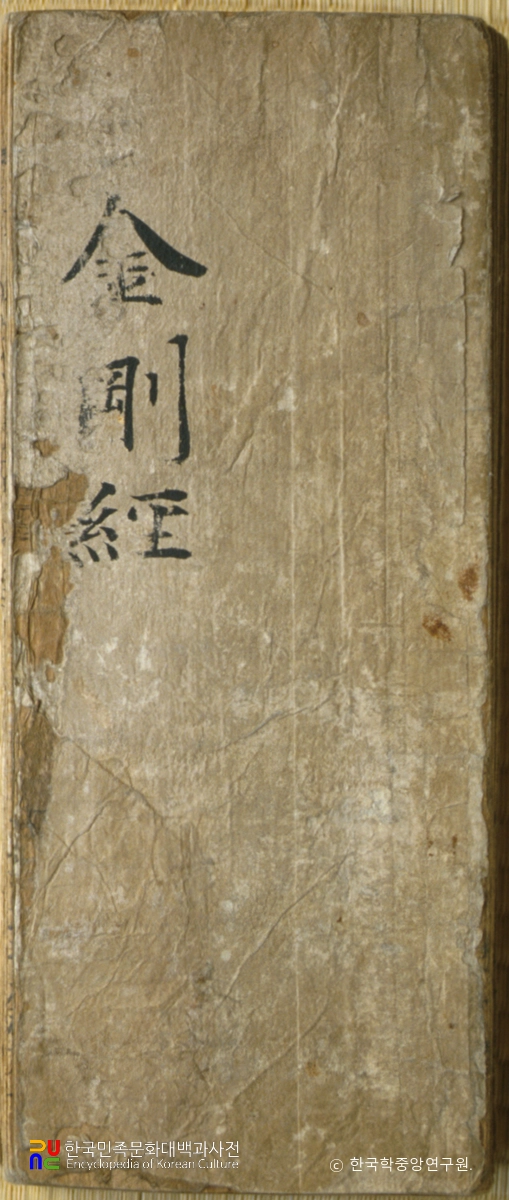 金剛經
한국민족문화대백과사전
Encyclopedia of Korean Culture
© 한국학중앙연구원.